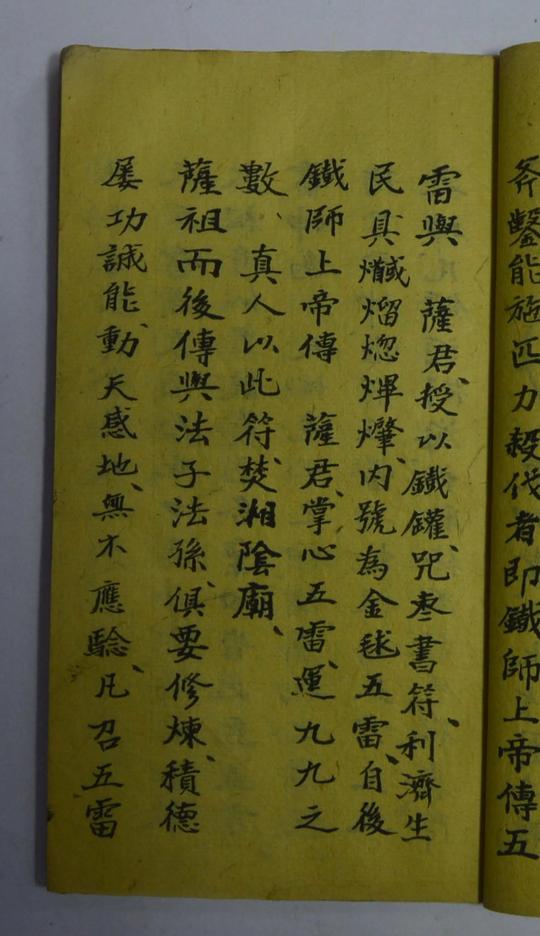 斧鑿能施匹力殺伐者即鐵師上帝傳五
雷與　薩君、授以鐵鑵、咒棗書符、利濟生
民具熾熘熜煇㸐、內號為金毬五雷、自後
鐵師上帝傳　薩君、掌心五雷、運九九之
數、真人以此符、焚湘陰廟、
薩祖而後傳與法子法孫、俱要修煉、積德
屡功誠能、動天感地、無不應驗、凡召五雷